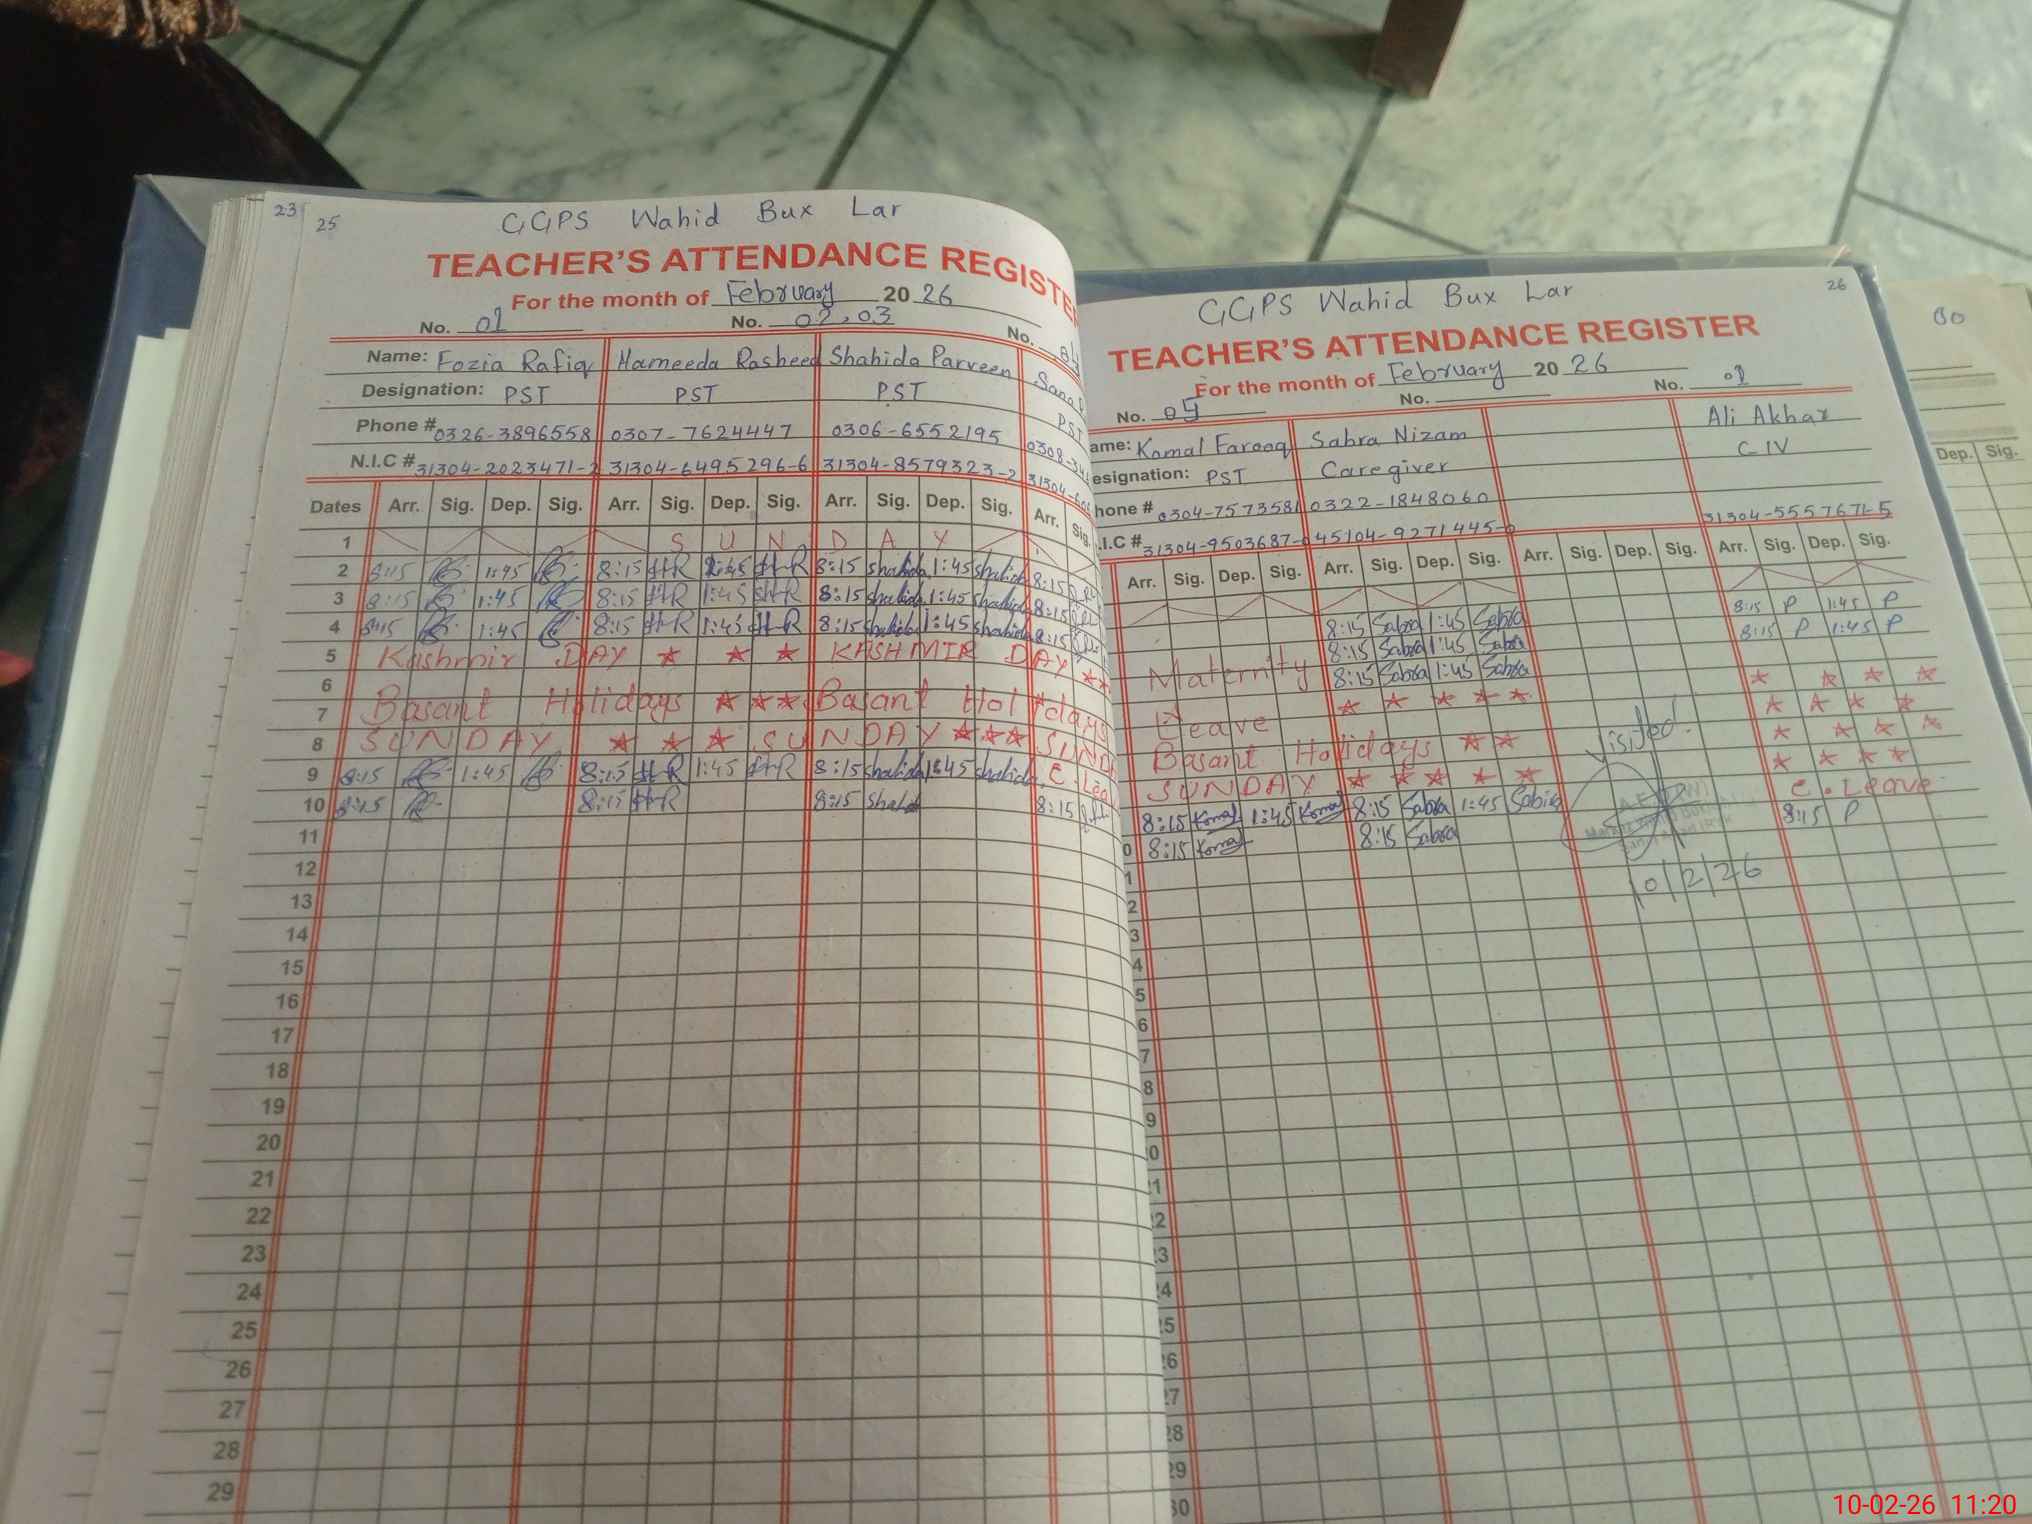 23
25
GGPS Wahid Bux Lar
TEACHER'S ATTENDANCE REGISTE
For the month of February 20 26
No. 01 No. 02,03 No. 04
Name: Fozia Rafiq Hameeda Rasheed Shahida Parveen Sana
Designation: PST PST PST PST
Phone # 0326-3896558 0307-7624447 0306-6552195 0308-34
N.I.C # 31304-2023471-2 31304-6495296-6 31304-8579323-2 31304-6
Dates Arr. Sig. Dep. Sig. Arr. Sig. Dep. Sig. Arr. Sig. Dep. Sig. Arr. Sig.
1 S U N D A Y
2 8:15 1:45 8:15 HR 1:45 HR 8:15 Shahida 1:45 Shahida 8:15
3 8:15 1:45 8:15 HR 1:45 HR 8:15 Shahida 1:45 Shahida 8:15
4 8:15 1:45 8:15 HR 1:45 HR 8:15 Shahida 1:45 Shahida 8:15
5 Kashmir DAY ★ ★ ★ KASHMIR DAY ★★
6
7 Basant Holidays ★★★ Basant Holidays
8 SUNDAY ★ ★ ★ SUNDAY ★★★ SUND
9 8:15 1:45 8:15 HR 1:45 HR 8:15 Shahida 1:45 Shahida C.Lea
10 8:15 8:15 HR 8:15 Shahid 8:15
11
12
13
14
15
16
17
18
19
20
21
22
23
24
25
26
27
28
29
26
GGPS Wahid Bux Lar
TEACHER'S ATTENDANCE REGISTER
For the month of February 20 26
No. 05 No. No. 01
ame: Komal Farooq Sabra Nizam Ali Akbar
esignation: PST Caregiver C-IV
hone # 0304-7573581 0322-1848060
.I.C # 31304-9503687-0 45104-9271445-0 31304-5557671-5
Arr. Sig. Dep. Sig. Arr. Sig. Dep. Sig. Arr. Sig. Dep. Sig. Arr. Sig. Dep. Sig.
8:15 Sabra 1:45 Sabra 8:15 P 1:45 P
8:15 Sabra 1:45 Sabra 8:15 P 1:45 P
Maternity 8:15 Sabra 1:45 Sabra
Leave ★ ★ ★ ★ ★ ★ ★ ★ ★
Basant Holidays ★ ★ ★ ★ ★ ★
SUNDAY ★ ★ ★ ★ ★ ★ ★ ★ ★
8:15 Komal 1:45 Komal 8:15 Sabra 1:45 Sabra C.Leave
0 8:15 Komal 8:15 Sabra 8:15 P
Visited.
10/2/26
1
2
3
4
5
6
7
8
9
0
21
22
23
24
25
26
27
28
29
30
Dep. Sig.
10-02-26 11:20